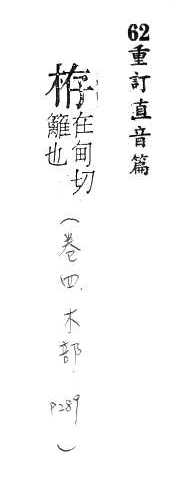 62重訂直音篇
栫在甸切
籬也
（卷四.木部 P289）